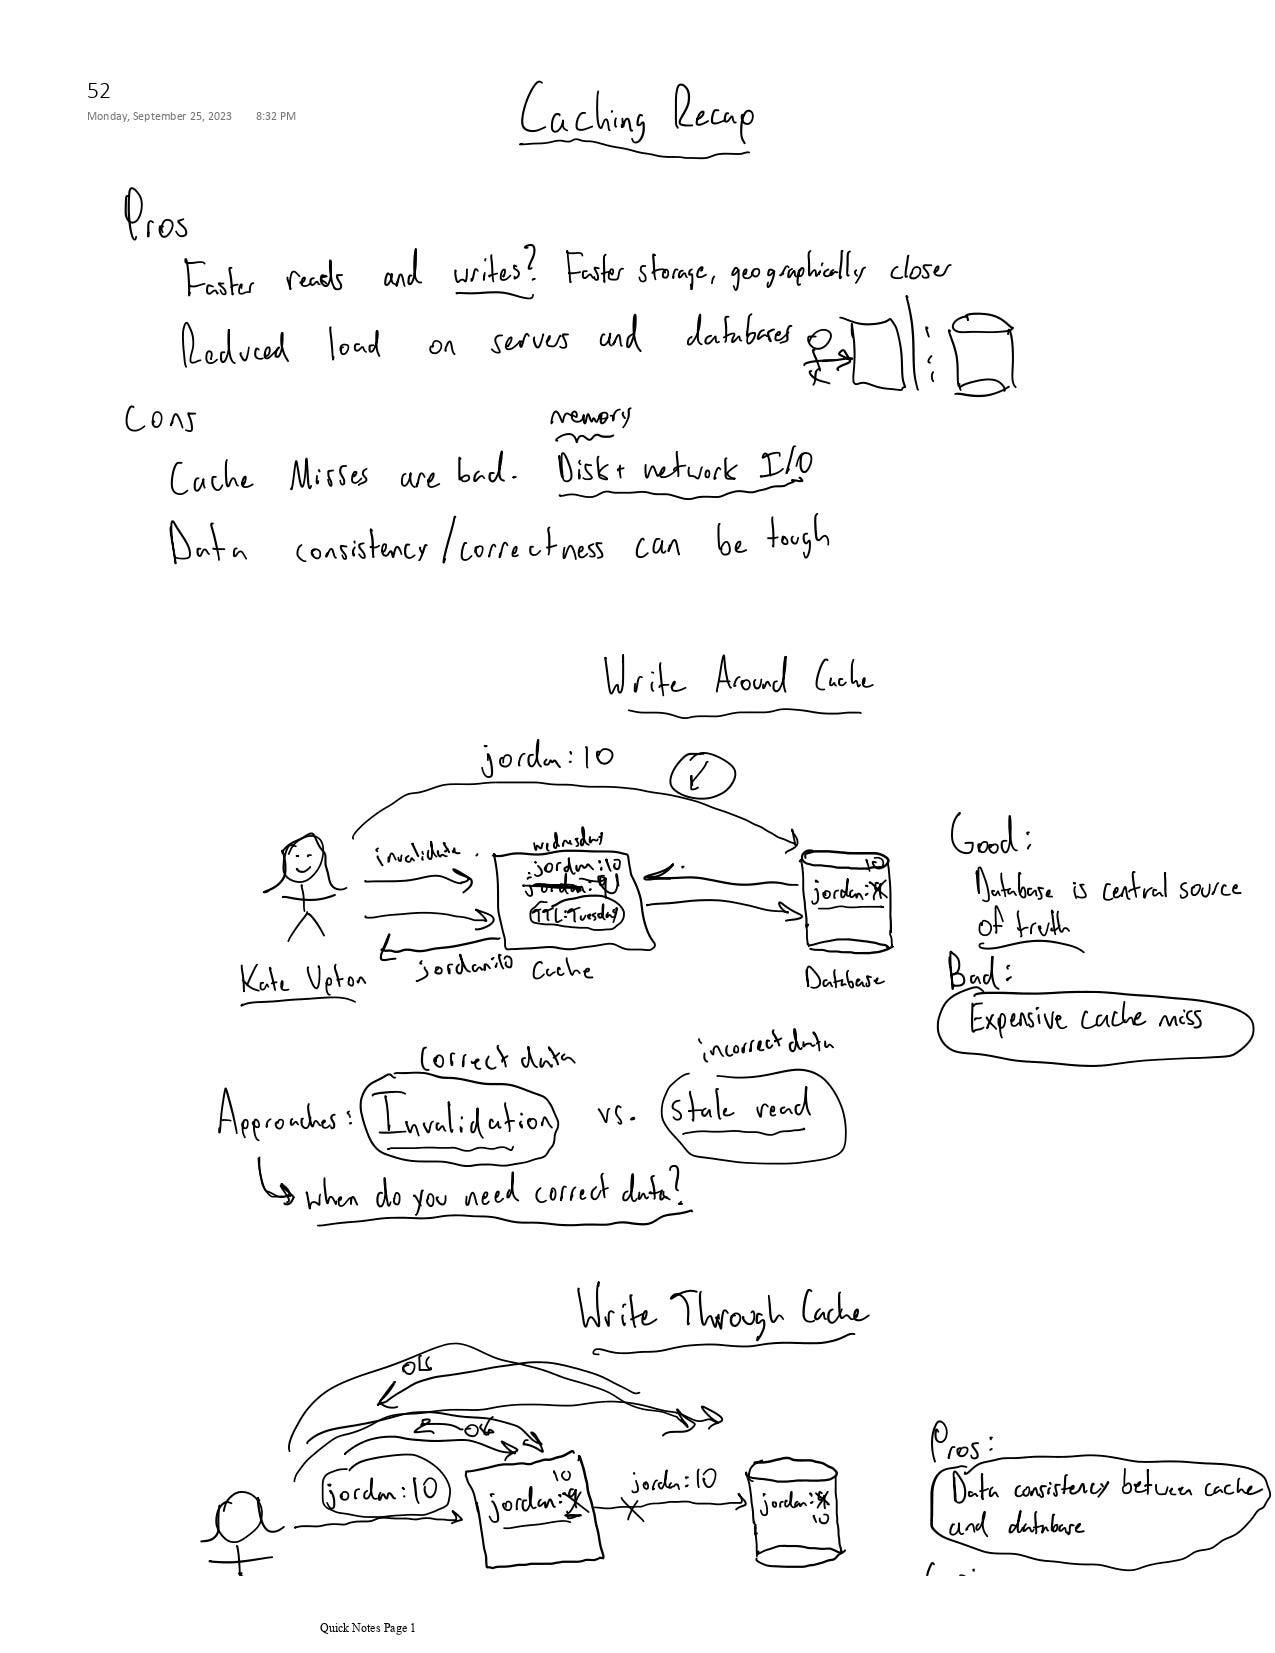 52
Monday, September 25, 2023 8:32 PM
Caching Recap
Pros
Faster reads and writes? Faster storage, geographically closer
Reduced load on servers and databases
Cons
memory
Cache Misses are bad. Disk + network I/O
Data consistency/correctness can be tough
Write Around Cache
jordan:10
invalidate
wednesday
jordan:10
jordan:9
TTL:Tuesday
10
jordan:
jordan:10
Cache
Database
Kate Upton
Good:
Database is central source
of truth
Bad:
Expensive cache miss
correct data
incorrect data
Approaches: Invalidation vs. stale read
when do you need correct data?
Write Through Cache
ok
ok
jordan:10
10
jordan:9
jordan:10
jordan:
10
Pros:
Data consistency between cache
and database
Quick Notes Page 1